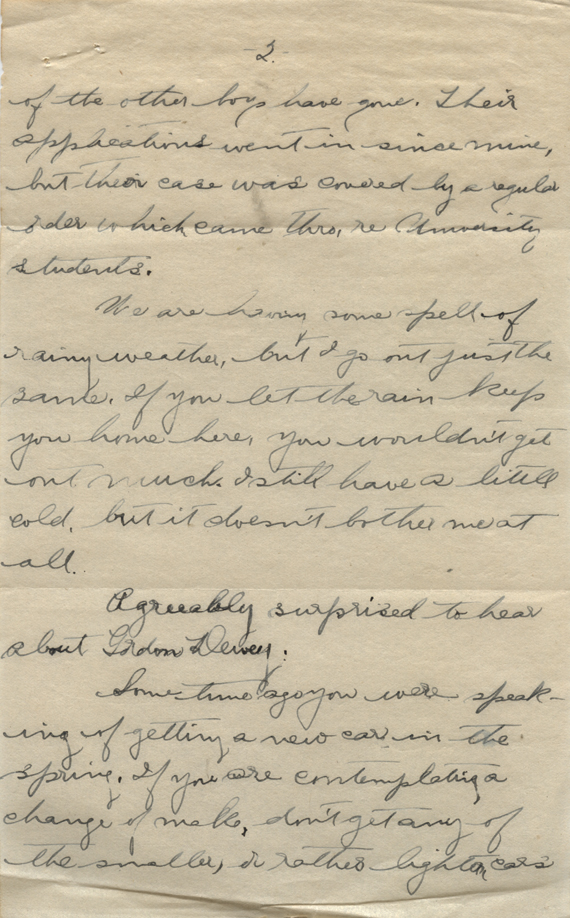 -2.-
of the other boys have gone. Their
applications went in since mine,
but their case was covered by a regular
order which came thro, re University
students.
We are having some spell of
rainy weather, but I go out just the
same. If you let the rain keep
you home here, you wouldn't get
out much. I still have a little
cold, but it doesn't bother me at
all.
Agreeably surprised to hear
about Gordon Dewey.
Some time ago you were speak-
ing of getting a new car in the
spring. If you are contemplating a
change of make, don't get any of
the smaller, or rather lighter cars